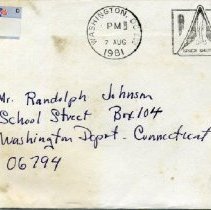 WASHINGTON, CT
PM
7 AUG
1981
Mr. Randolph Johnson
School Street Box 104
Washington Depot - Connecticut
06794